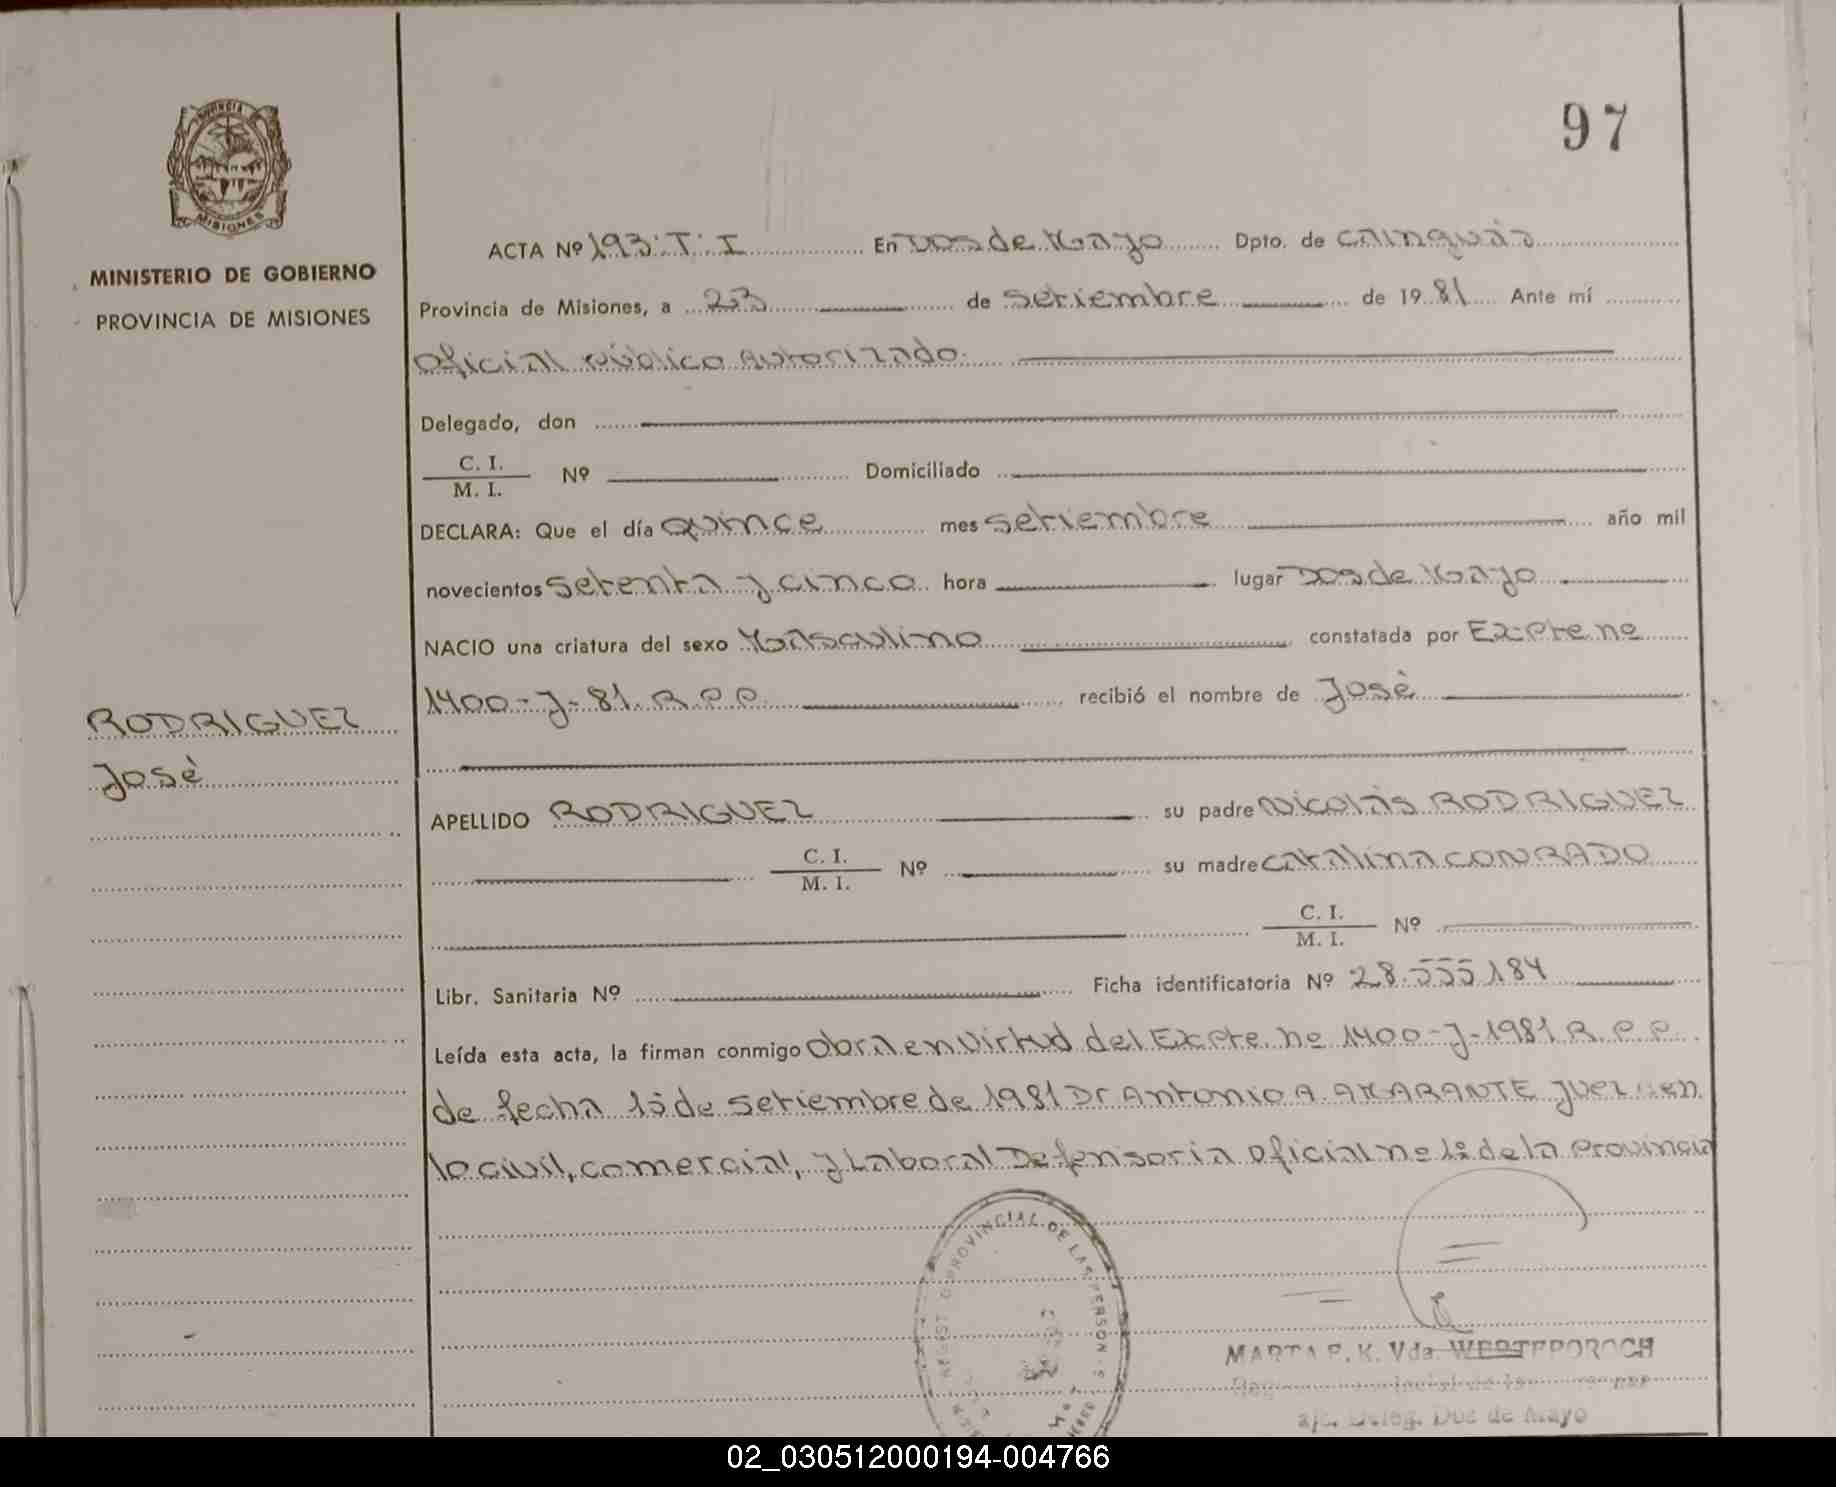 97
PROVINCIA
MISIONES
MINISTERIO DE GOBIERNO
PROVINCIA DE MISIONES
RODRIGUEZ
José
ACTA Nº 193. T. I En Dos de Mayo Dpto. de Cainguás
Provincia de Misiones, a 23 de setiembre de 1981 Ante mí
Oficial público Autorizado.
Delegado, don
C. I.
M. I. Nº Domiciliado
DECLARA: Que el día quince mes setiembre año mil
novecientos setenta y cinco hora lugar Dos de Mayo
NACIO una criatura del sexo Masculino constatada por Expte. nº
1400-J-81. R.P.P. recibió el nombre de José
APELLIDO RODRIGUEZ su padre Nicolás RODRIGUEZ
C. I.
M. I. Nº su madre Catalina CONRADO
C. I.
M. I. Nº
Libr. Sanitaria Nº Ficha identificatoria Nº 28.555.184
Leída esta acta, la firman conmigo Obra en virtud del Expte. nº 1400-J-1981 R.P.P.
de fecha 15 de setiembre de 1981 Dr Antonio A. AMARANTE Juez en
lo civil, comercial, y Laboral Defensoria Oficial nº 1º de la Provincia
PROVINCIAL DE LAS PERSON
MARTA E. K. Vda. WESTERORCH
Deleg. Dos de Mayo
02_030512000194-004766